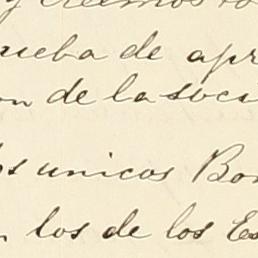 y creemos
prueba de apr
on de la soca
os unicos Bon
n los de los Es